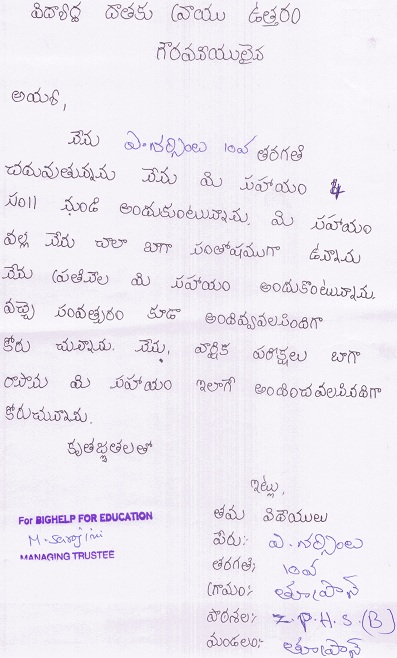 విద్యార్థి దాతకు వ్రాయు ఉత్తరం
గౌరవనీయులైన
అయ్యా,
నేను ఎ. నర్సింలు 10వ తరగతి
చదువుతున్నాను నేను మి సహాయం 4
సం॥ నుండి అందుకుంటున్నాను. మి సహాయం
వల్ల నేను చాలా బాగా సంతోషముగా ఉన్నాను
నేను ప్రతినెల మి సహాయం అందుకొంటున్నాను.
వచ్చె సంవత్సరం కూడా అందివ్వవలసిందిగా
కోరు చున్నాను. నేను, వార్షిక పరీక్షలు బాగా
రాసాను మి సహాయం ఇలాగే అందించవలసినదిగా
కోరుచున్నాను.
కృతజ్ఞతలతో
ఇట్లు,
తమ విధేయులు
పేరు: ఎ. నర్సింలు
తరగతి: 10వ
గ్రామం: తూప్రాన్
పాఠశాల: Z.P.H.S.(B)
మండలం: తూప్రాన్
For BIGHELP FOR EDUCATION
M. Sarojini
MANAGING TRUSTEE